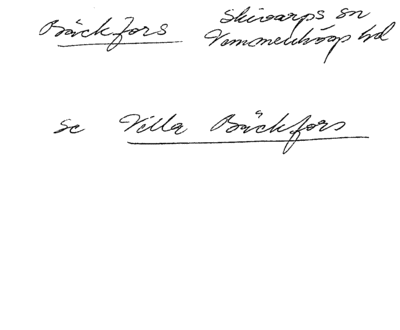 Bäckfors
Skivarps sn
Vemmenhögs hd
se Villa Bäckfors